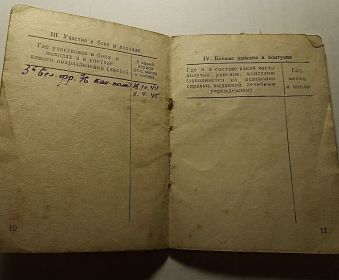 III. Участие в боях и походах
Где участвовал в боях и
походах и в составе
какого подразделения (части)
С какого
времени
(год, месяц
и число)
3й Бел. фр. 76
16.10.44
10
IV. Боевые ранения и контузии
Где и в составе какой части
получил ранение, контузию
(заполняется на основании
справки, выданной лечебным
учреждением)
Год,
месяц
и число
11